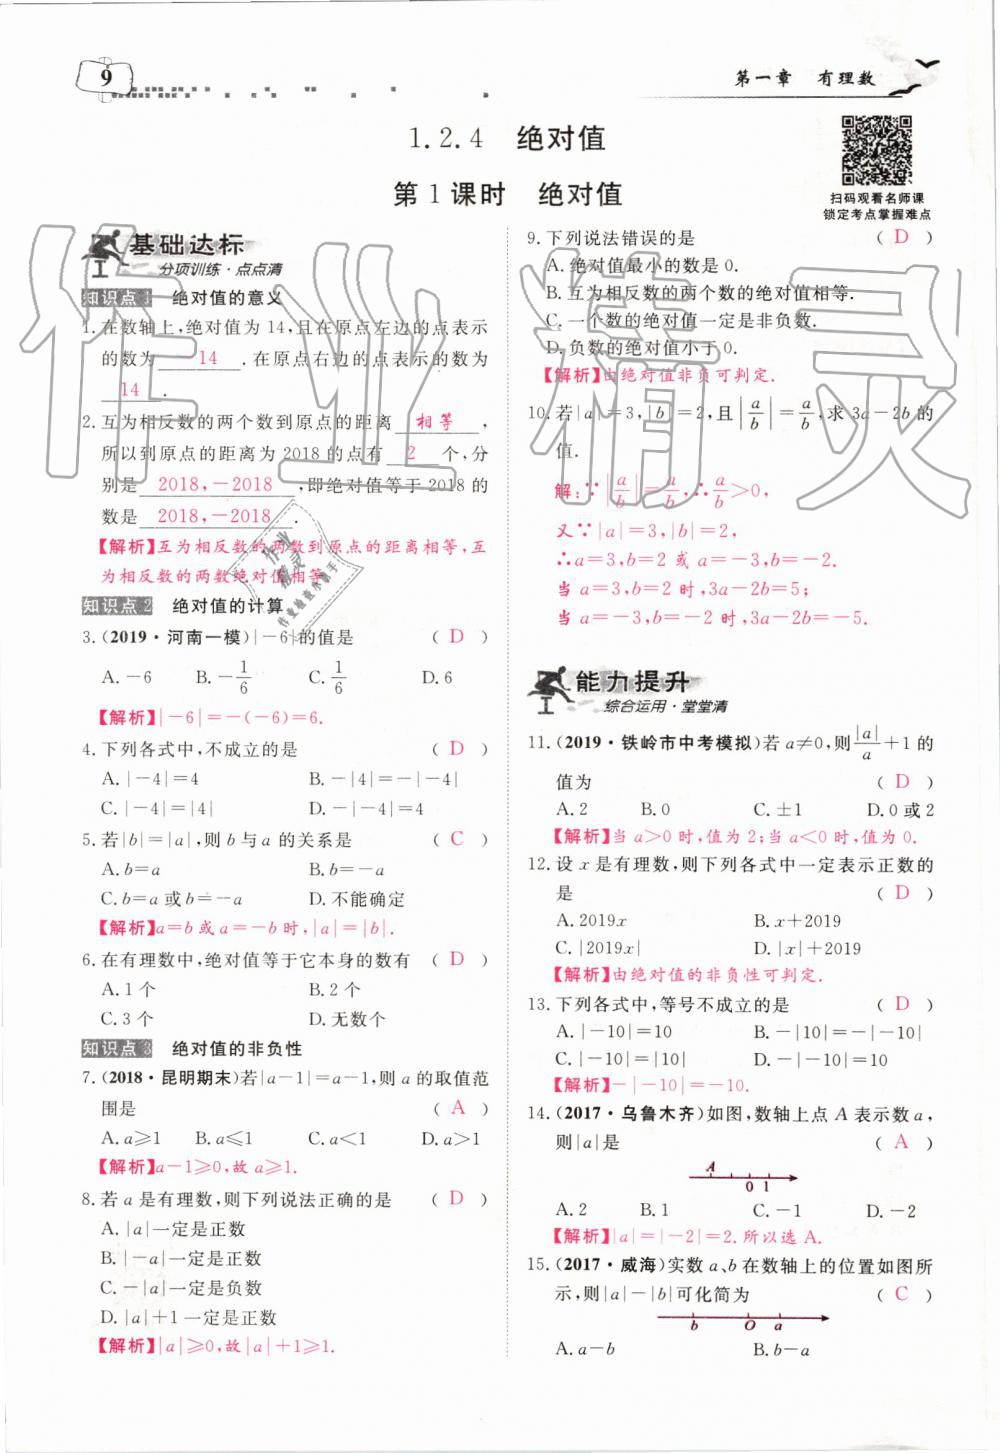 9
第一章 有理数
1.2.4 绝对值
第1课时 绝对值
扫码观看名师课
锁定考点掌握难点
基础达标
分项训练·点点清
知识点1 绝对值的意义
1.在数轴上,绝对值为14,且在原点左边的点表示
的数为 14 .在原点右边的点表示的数为
14 .
2.互为相反数的两个数到原点的距离 相等 ,
所以到原点的距离为2018的点有 2 个,分
别是 2018,-2018 ,即绝对值等于2018的
数是 2018,-2018 .
【解析】互为相反数的两数到原点的距离相等,互
为相反数的两数绝对值相等.
知识点2 绝对值的计算
3.(2019·河南一模)|-6|的值是 ( D )
A.-6 B.-1/6 C.1/6 D.6
【解析】|-6|=-(-6)=6.
4.下列各式中,不成立的是 ( D )
A.|-4|=4 B.-|4|=-|-4|
C.|-4|=|4| D.-|-4|=4
5.若|b|=|a|,则b与a的关系是 ( C )
A.b=a B.b=-a
C.b=a或b=-a D.不能确定
【解析】a=b或a=-b时,|a|=|b|.
6.在有理数中,绝对值等于它本身的数有 ( D )
A.1个 B.2个
C.3个 D.无数个
知识点3 绝对值的非负性
7.(2018·昆明期末)若|a-1|=a-1,则a的取值范
围是 ( A )
A.a≥1 B.a≤1 C.a<1 D.a>1
【解析】a-1≥0,故a≥1.
8.若a是有理数,则下列说法正确的是 ( D )
A.|a|一定是正数
B.|-a|一定是正数
C.-|a|一定是负数
D.|a|+1一定是正数
【解析】|a|≥0,故|a|+1≥1.
9.下列说法错误的是 ( D )
A.绝对值最小的数是0.
B.互为相反数的两个数的绝对值相等.
C.一个数的绝对值一定是非负数.
D.负数的绝对值小于0.
【解析】由绝对值非负可判定.
10.若|a|=3,|b|=2,且|a/b|=a/b,求3a-2b的
值.
解:∵|a/b|=a/b,∴a/b>0,
又∵|a|=3,|b|=2,
∴a=3,b=2或a=-3,b=-2.
当a=3,b=2时,3a-2b=5;
当a=-3,b=-2时,3a-2b=-5.
能力提升
综合运用·堂堂清
11.(2019·铁岭市中考模拟)若a≠0,则|a|/a+1的
值为 ( D )
A.2 B.0 C.±1 D.0或2
【解析】当a>0时,值为2;当a<0时,值为0.
12.设x是有理数,则下列各式中一定表示正数的
是 ( D )
A.2019x B.x+2019
C.|2019x| D.|x|+2019
【解析】由绝对值的非负性可判定.
13.下列各式中,等号不成立的是 ( D )
A.|-10|=10 B.-|10|=-|-10|
C.|-10|=|10| D.-|-10|=10
【解析】-|-10|=-10.
14.(2017·乌鲁木齐)如图,数轴上点A表示数a,
则|a|是 ( A )
A
0 1
A.2 B.1 C.-1 D.-2
【解析】|a|=|-2|=2.所以选A.
15.(2017·威海)实数a、b在数轴上的位置如图所
示,则|a|-|b|可化简为 ( C )
b O a
A.a-b B.b-a
作业精灵
作业精灵
作业检查小帮手